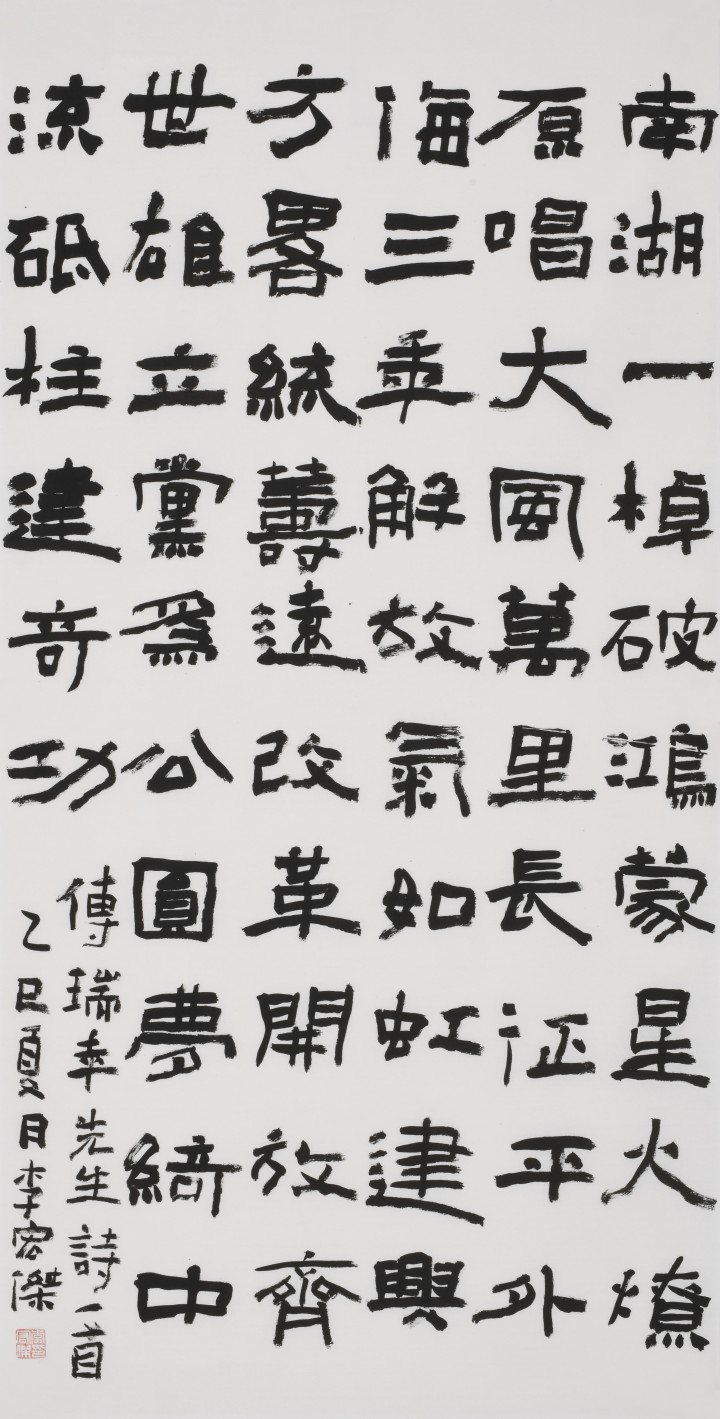 南湖一棹破鴻蒙星火燎
原唱大風萬里長征平外
侮三年解放氣如虹建興
方畧統籌遠改革開放齊
世雄立黨爲公圓夢綺中
流砥柱建奇功
傅瑞年先生詩一首
乙巳夏月李宏傑